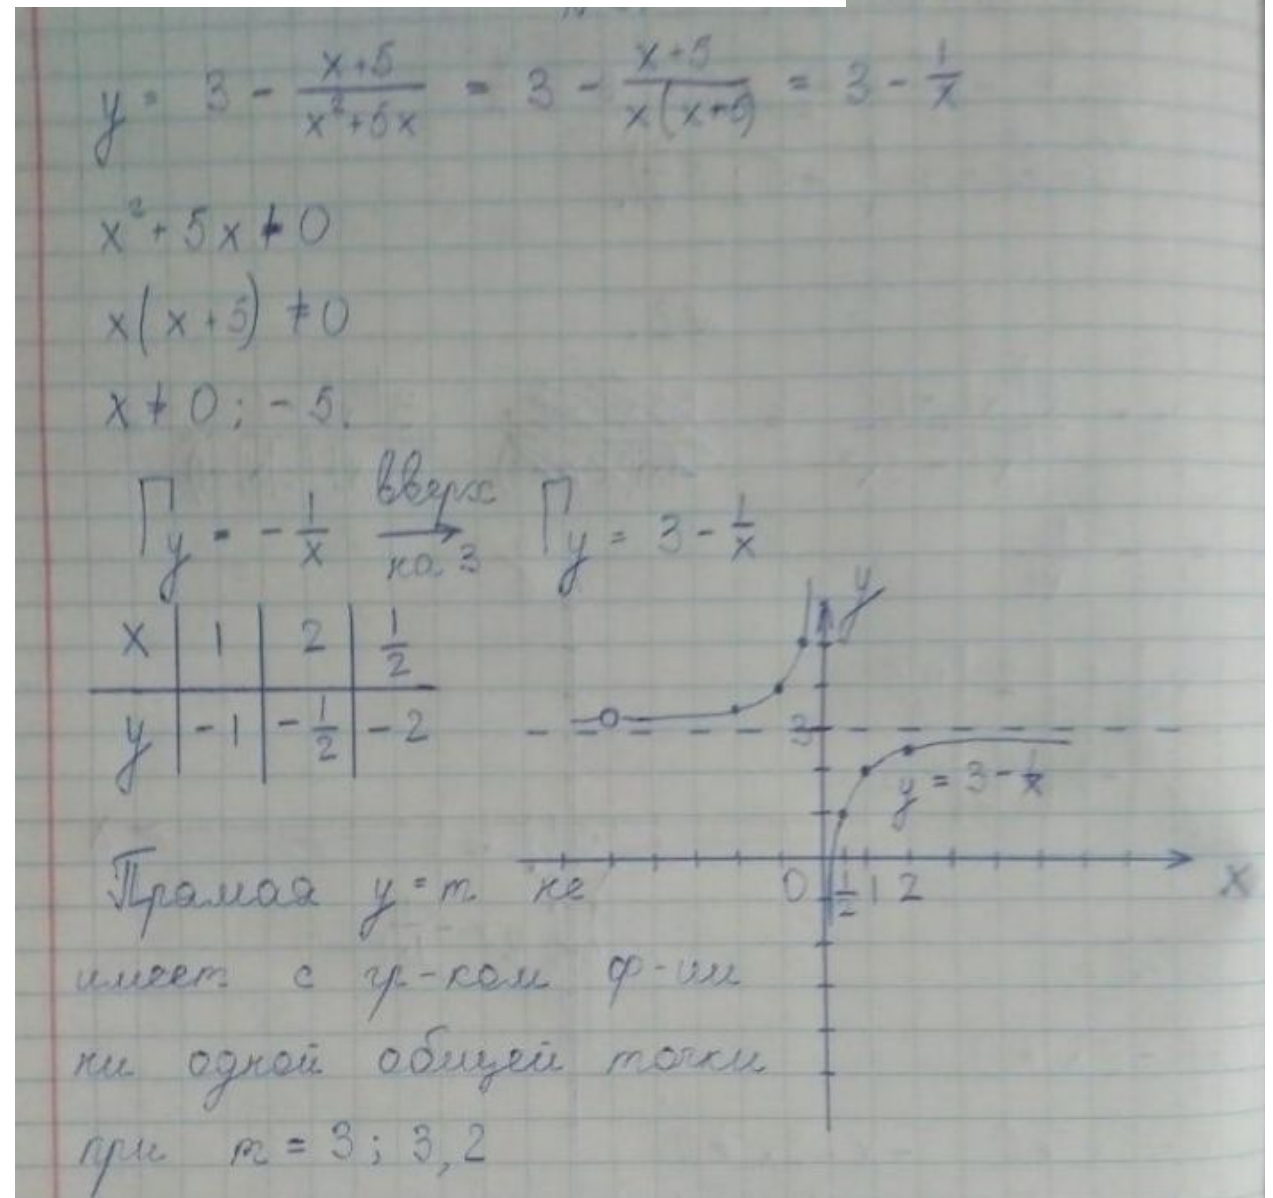 y = 3 - \frac{x+5}{x²+5x} = 3 - \frac{x+5}{x(x+5)} = 3 - \frac{1}{x}
x²+5x ≠ 0
x(x+5) ≠ 0
x ≠ 0; -5.
Гy = -\frac{1}{x} вверх на 3 → Гy = 3 - \frac{1}{x}
x | 1 | 2 | \frac{1}{2}
y | -1 | -\frac{1}{2} | -2
y
3
y = 3 - \frac{1}{x}
0 \frac{1}{2} 1 2 x
Прямая y = m не
имеет с гр-ком ф-ии
ни одной общей точки
при m = 3; 3,2